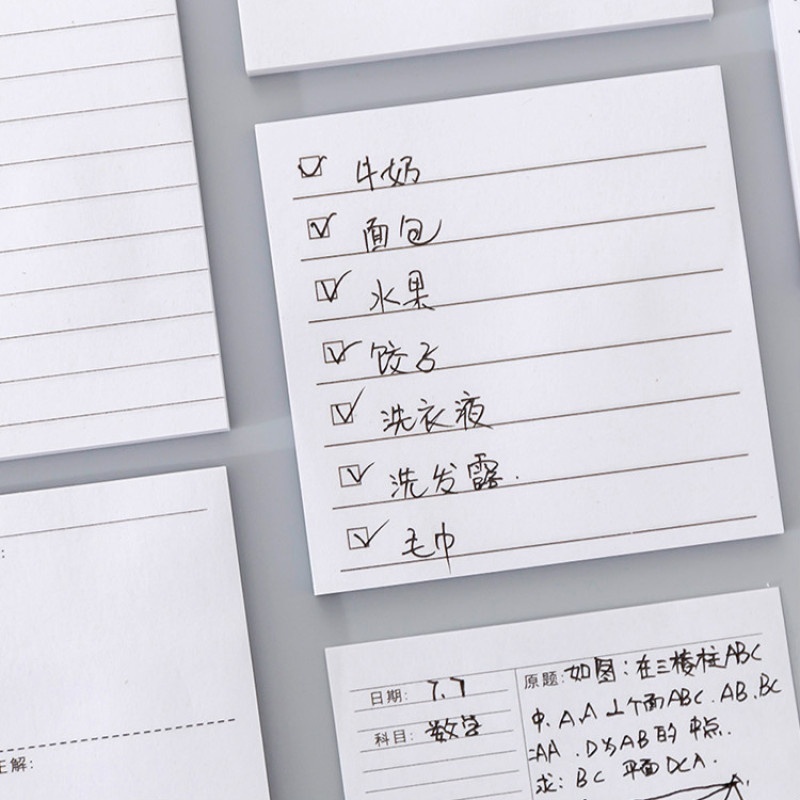 牛奶
面包
水果
饺子
洗衣液
洗发露.
毛巾
日期: 7.7
科目: 数学
原题: 如图:在三棱柱ABC
中, A₁A⊥个面ABC. AB. BC
=AA . D为AB的 中点.
求: BC 平面DCA.
正解: